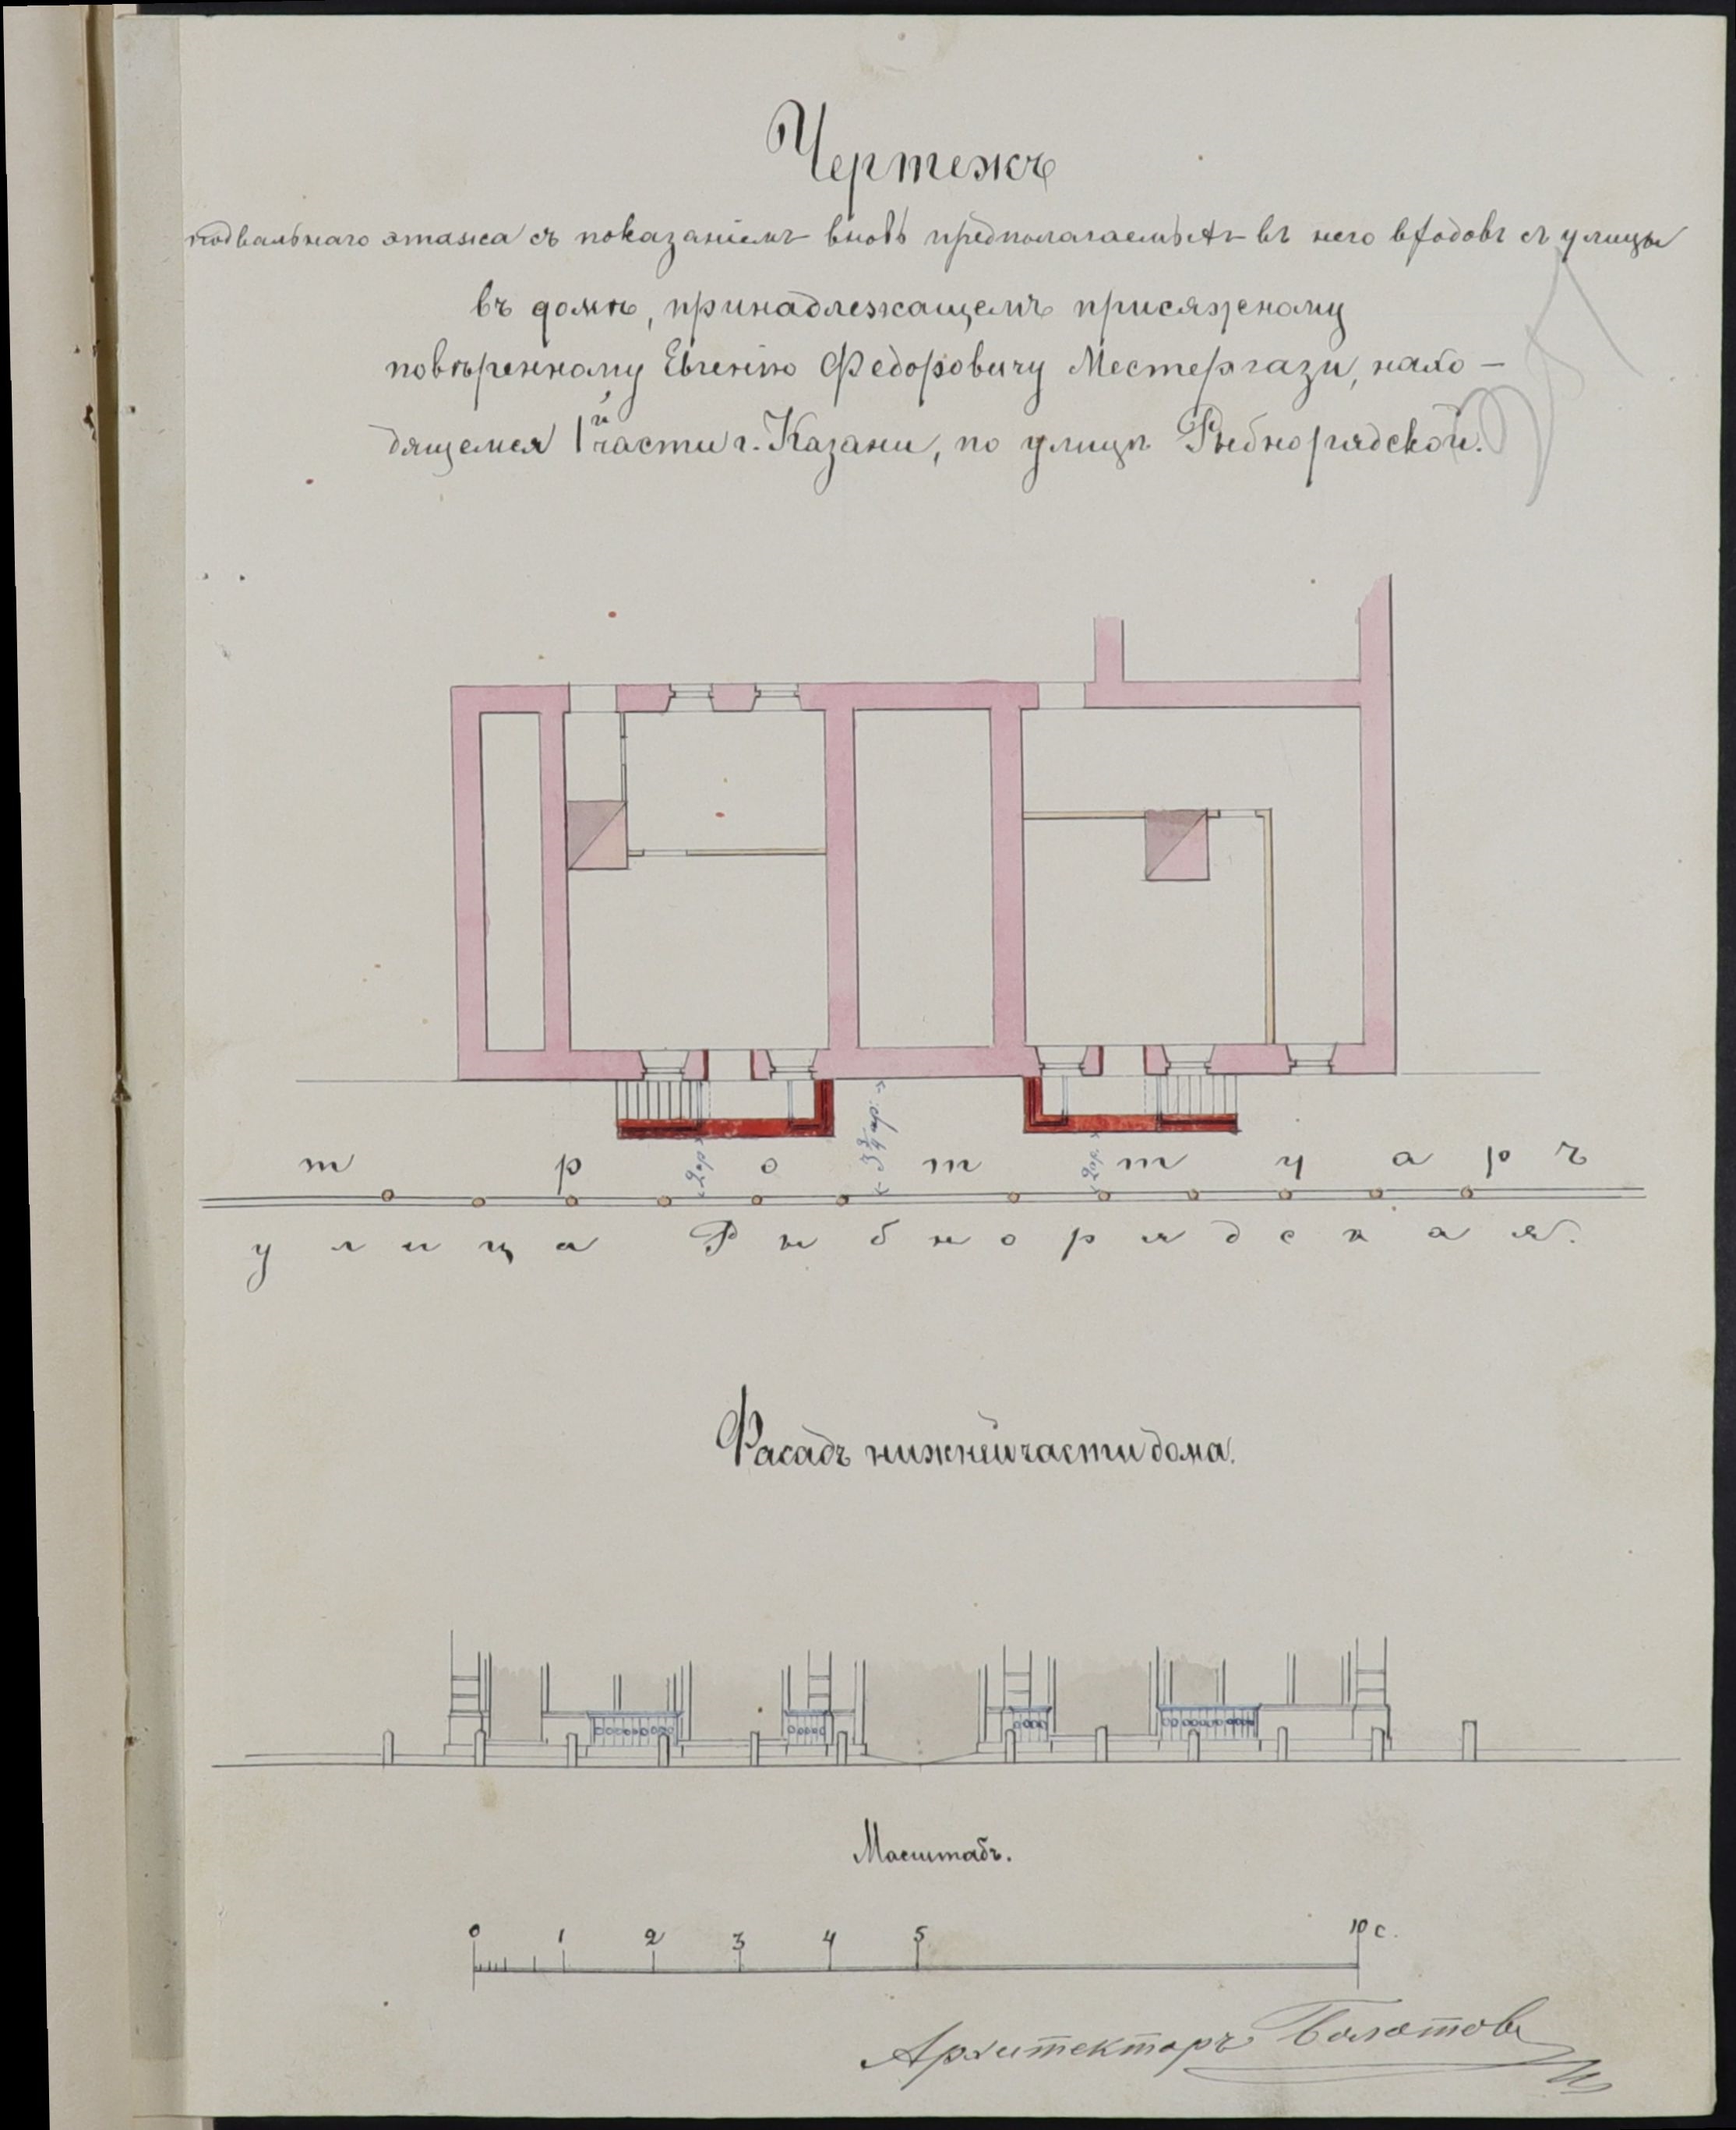 Чертежъ
подвальнаго этажа съ показаніемъ вновь предполагаемыхъ въ него входовъ съ улицы
въ домѣ, принадлежащемъ присяжному
повѣренному Евгенію Федоровичу Местергази, нахо-
дящемся 1й части г. Казани, по улицѣ Рыбнорядской.
2 ар.
3 3/4 ар.
2 ар.
тротуаръ
улица Рыбнорядская.
Фасадъ нижней части дома.
Масштабъ.
0 1 2 3 4 5 10 с.
Архитекторъ Болотовъ